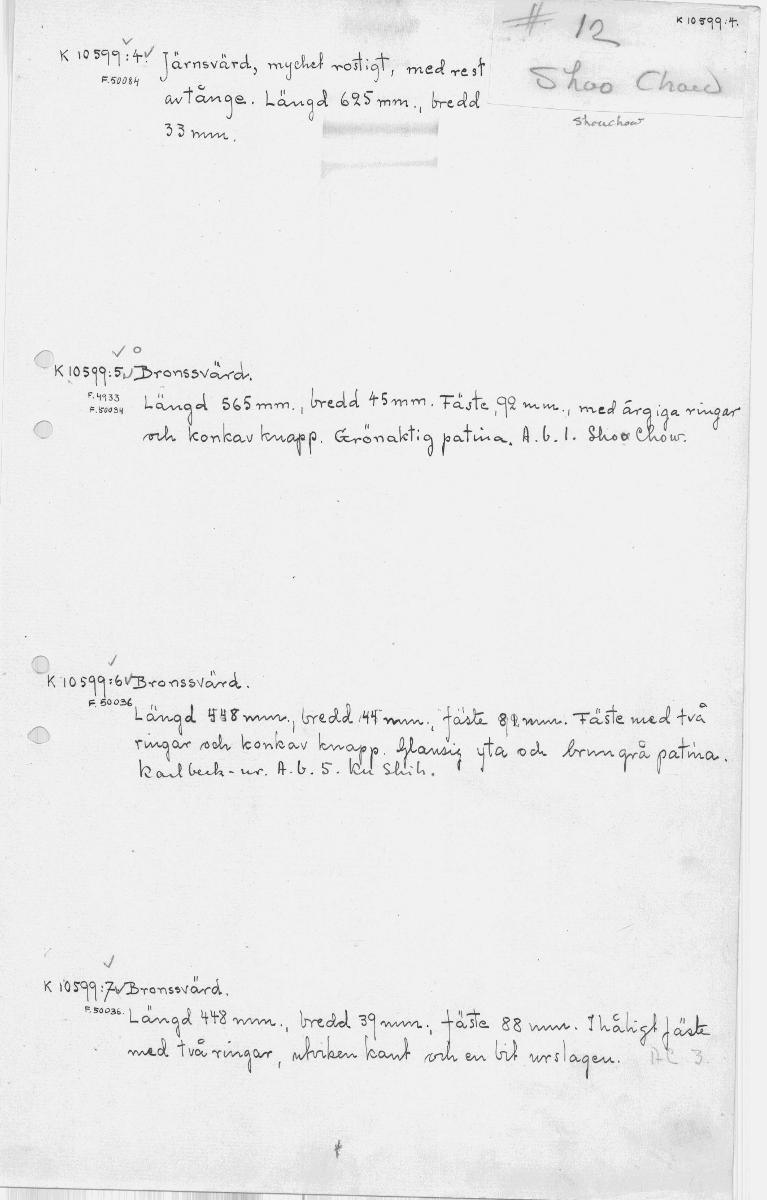 K 10599:4.
# 12
Shoo Chow
Shouchow
K 10599:4. Järnsvärd, mycket rostigt, med rest
F.50084
av tånge. Längd 625 mm., bredd
33 mm.
K 10599:5. Bronssvärd.
F.4933
F.50034
Längd 565 mm., bredd 45 mm. Fäste, 92 mm., med ärgiga ringar
och konkav knapp. Grönaktig patina. A.b.1. Shoo Chow.
K 10599:6 Bronssvärd.
F.50036
Längd 448 mm., bredd 44 mm., fäste 82 mm. Fäste med två
ringar och konkav knapp. Glansig yta och brungrå patina.
Karlbeck-nr. A.b.5. Ku Shih.
K 10599:7 Bronssvärd.
F.50036.
Längd 448 mm., bredd 39 mm., fäste 88 mm. Ihåligt fäste
med två ringar, utviken kant och en bit urslagen. AC 3.